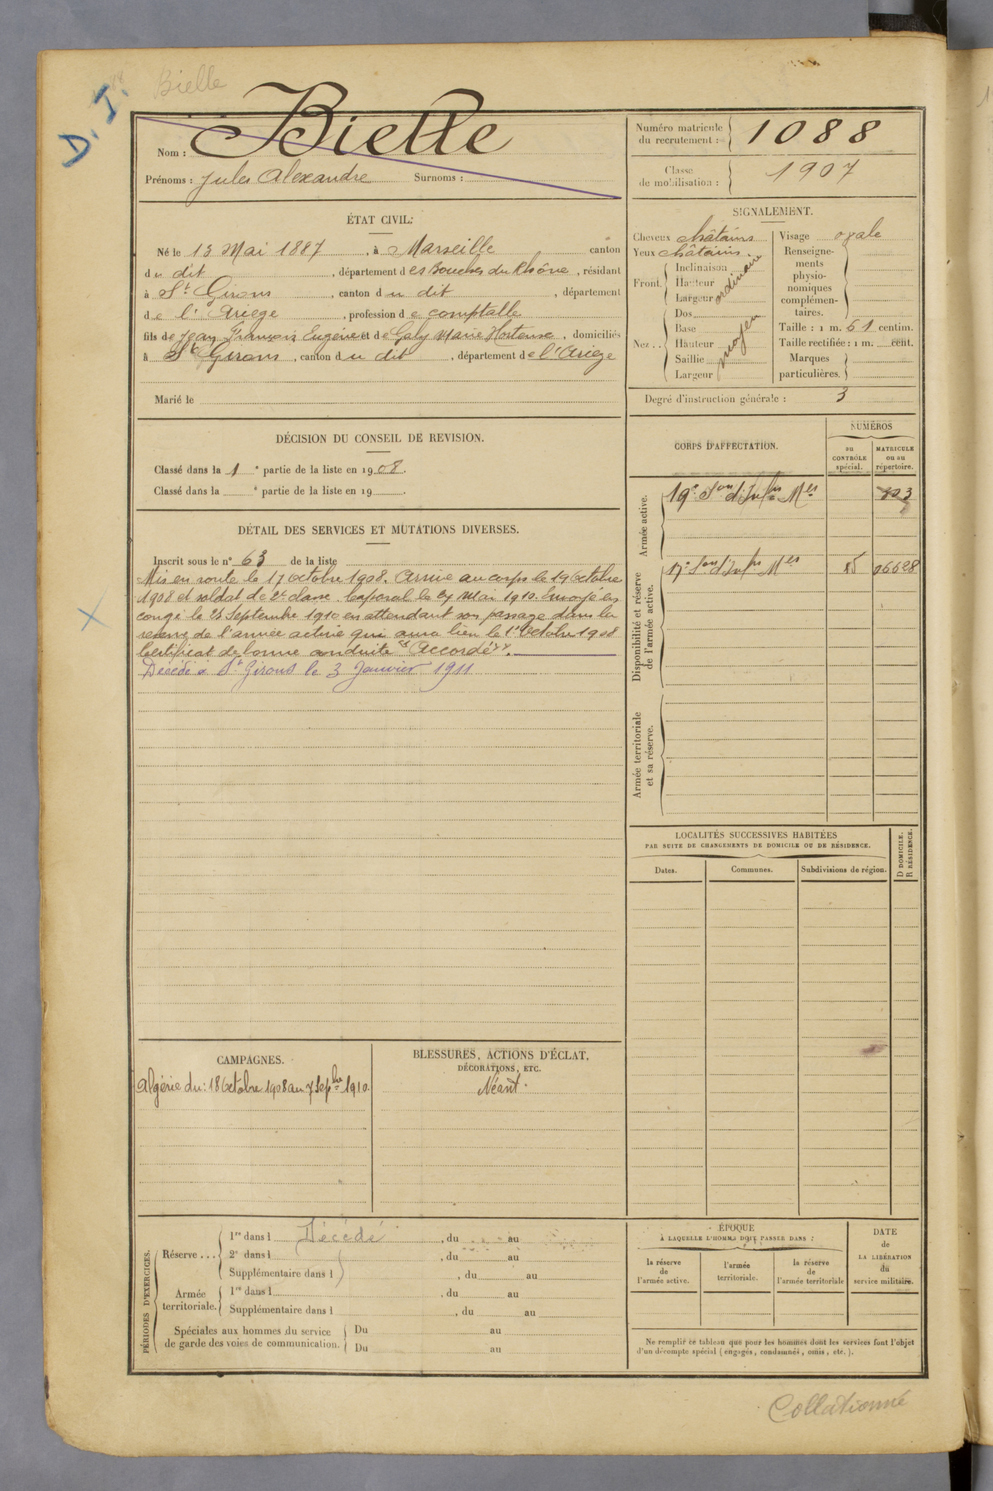 D. I.
Bielle
Nom : Bielle
Prénoms : Jules Alexandre Surnoms :
Numéro matricule du recrutement : 1088
Classe de mobilisation : 1907
ÉTAT CIVIL.
Né le 13 Mai 1887, à Marseille canton
du dit, département des Bouches du Rhône, résidant
à St Girons, canton du dit, département
de l'Ariège, profession de comptable
fils de Jean François Eugène et de Galy Marie Hortense, domiciliés
à St Girons, canton du dit, département de l'Ariège
Marié le
SIGNALEMENT.
Cheveux châtains
Yeux châtains.
Front. Inclinaison Hauteur Largeur ordinaire
Nez.. Dos Base Hauteur Saillie Largeur moyen
Visage ovale
Renseignements physionomiques complémentaires.
Taille : 1 m. 61 centim.
Taille rectifiée : 1 m. cent.
Marques particulières.
Degré d'instruction générale : 3
DÉCISION DU CONSEIL DE REVISION.
Classé dans la 1e partie de la liste en 1908.
Classé dans la e partie de la liste en 19 .
DÉTAIL DES SERVICES ET MUTATIONS DIVERSES.
Inscrit sous le n° 63 de la liste
Mis en route le 17 octobre 1908. Arrivé au corps le 19 Octobre
1908 et soldat de 2e classe. Caporal le 27 Mai 1910. Envoyé en
congé le 25 Septembre 1910 en attendant son passage dans la
réserve de l'armée active qui aura lieu le 1er Octobre 1910
Certificat de bonne conduite "Accordé".
Décédé à St Girons le 3 Janvier 1911
CORPS D'AFFECTATION.
NUMÉROS
au CONTRÔLE spécial.
MATRICULE ou au répertoire.
Armée active.
19e Son d'Infirs Mres 3
Disponibilité et réserve de l'armée active.
17e Son d'Infirs Mres 06628
Armée territoriale et sa réserve.
LOCALITÉS SUCCESSIVES HABITÉES
PAR SUITE DE CHANGEMENTS DE DOMICILE OU DE RÉSIDENCE.
Dates. Communes. Subdivisions de région. D DOMICILE. R RÉSIDENCE.
CAMPAGNES.
Algérie du : 18 Octobre 1908 au 7 Sepbre 1910.
BLESSURES, ACTIONS D'ÉCLAT,
DÉCORATIONS, ETC.
Néant.
PÉRIODES D'EXERCICES.
Réserve ...
1re dans l Décédé, du au
2e dans l , du au
Supplémentaire dans l , du au
Armée territoriale.
1re dans l , du au
Supplémentaire dans l , du au
Spéciales aux hommes du service de garde des voies de communication.
Du au
Du au
ÉPOQUE
À LAQUELLE L'HOMME DOIT PASSER DANS :
la réserve de l'armée active.
l'armée territoriale.
la réserve de l'armée territoriale
DATE de LA LIBÉRATION du service militaire.
Ne remplir ce tableau que pour les hommes dont les services font l'objet
d'un décompte spécial (engagés, condamnés, omis, etc.).
Collationné